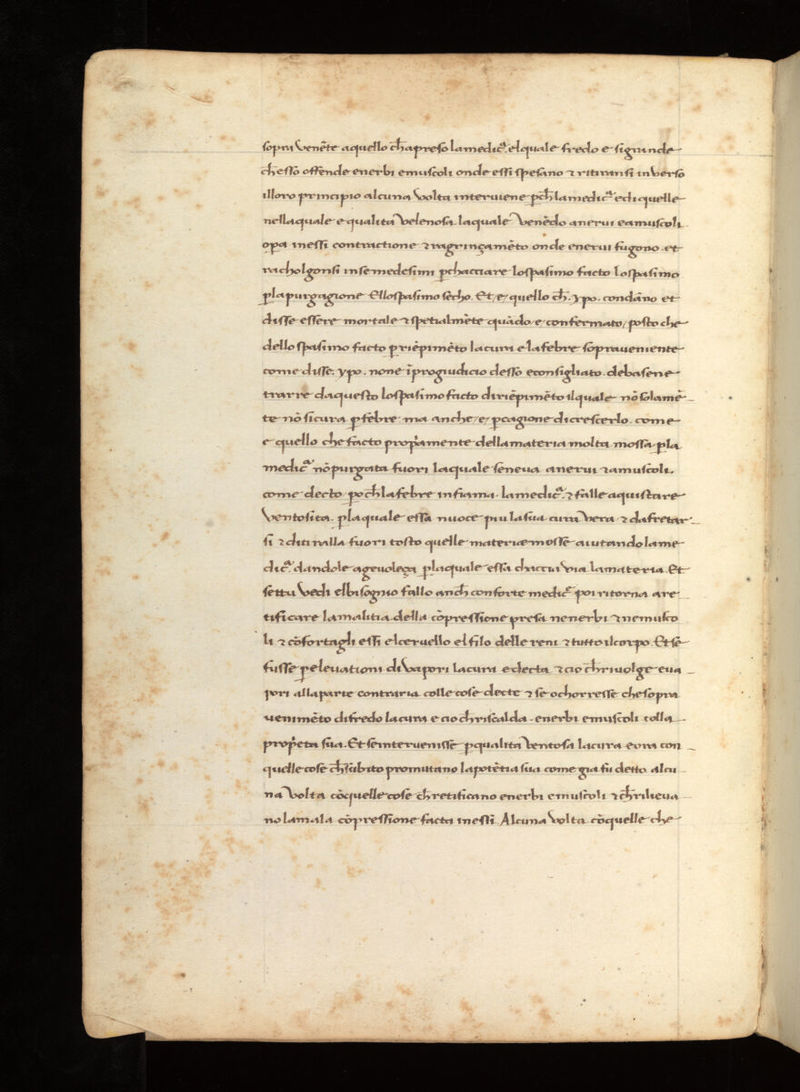 sopra venẽte aquello ch̃apreso lamedicᵃ. elquale fredo e signi nde
ch̃esso offende enerbi emuscoli onde essi spesano ⁊ ritiransi inverso
illoro principio alcuna volta interuiene pch̃ lamedicᵃ edi quelle
nellaquale e qualita velenosa. laquale venẽdo anerui eamuscoli.
opa inessi contractione ⁊ ragrinçamẽto onde enerui fugono et
racholgonsi insemedesimi pchacciare lospasimo facto lospasimo
plapurgagione Ellospasimo secho. Et/e/ quello ch̃. ypo. condãno et
disse essere mortale ⁊ spetialmẽte quãdo e confermato/ posto che
dello spasimo facto priẽpimẽto lacura elafebre sopraueniente
come disse. ypo. none ĩprogiudicio desso econsigliato. debasene
trarre daquesto lospasimo facto diriẽpimẽto ilquale nõ solamẽ
te nõ sicura pfebre ma anche/e/ pcagione dicrescerlo. come
e quello che facto propamente dellamateria molta mossa pla
medicᵃ nõ purgata fuori laquale seneua anerui ⁊ amuscoli.
come decto poch̃ lafebre infiama. lamedicᵃ. ⁊ falle aquistare
ventosita. plaquale essa nuoce piu lasua cura vera ⁊ dafretar
si ⁊ ditiralla fuori tosto quelle materie mosse aiutando lame
dicᵃ. dandole ageuoleça plaquale essa chacci via lamateria. Et
settu vedi elbisognio fallo anch̃ conforte medicᵉ poi ritorna are
tificare lamalitia della cõpressione presa nenerbi ⁊ nemusco
li ⁊ cõfortagli essi elceruello elfilo delle reni ⁊ tutto ilcorpo. Et se
fusse peleuationi divapori lacura edecta ⁊ cio ch̃ riuolge eua
pori allaparte contraria colle cose decte ⁊ se ochorresse chesopra
uenimẽto difredo lacura e cio chriscalda. enerbi emuscoli colla
propeta sua. Et seinteruenisse pqualita ventosa lacura eora con
quelle cose ch̃ subito promutano lapotẽtia sua come gia fu detto alcu
na volta cõquelle cose ch̃ retificano enerbi emuscoli ⁊ ch̃ rilieua
no lamala cõpressione facta inessi. Alcuna volta cõquelle che